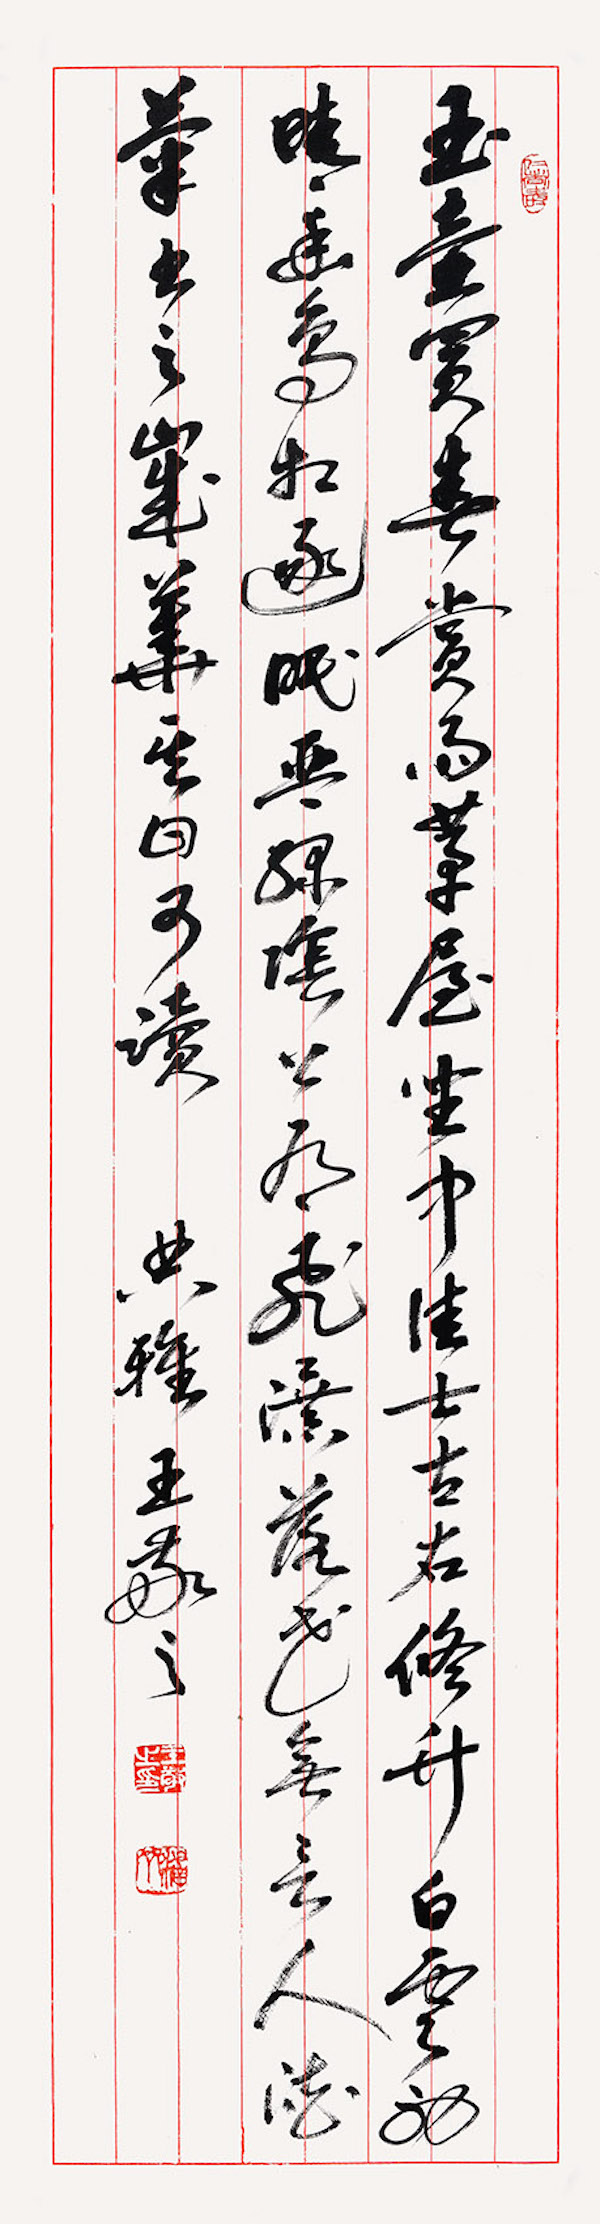 玉壺買春賞雨茆屋坐中佳士左右修竹白雲初
晴幽鳥相逐眠琴綠陰上有飛瀑落花無言人淡
如菊書之歲華其曰可讀 典雅 王敬之